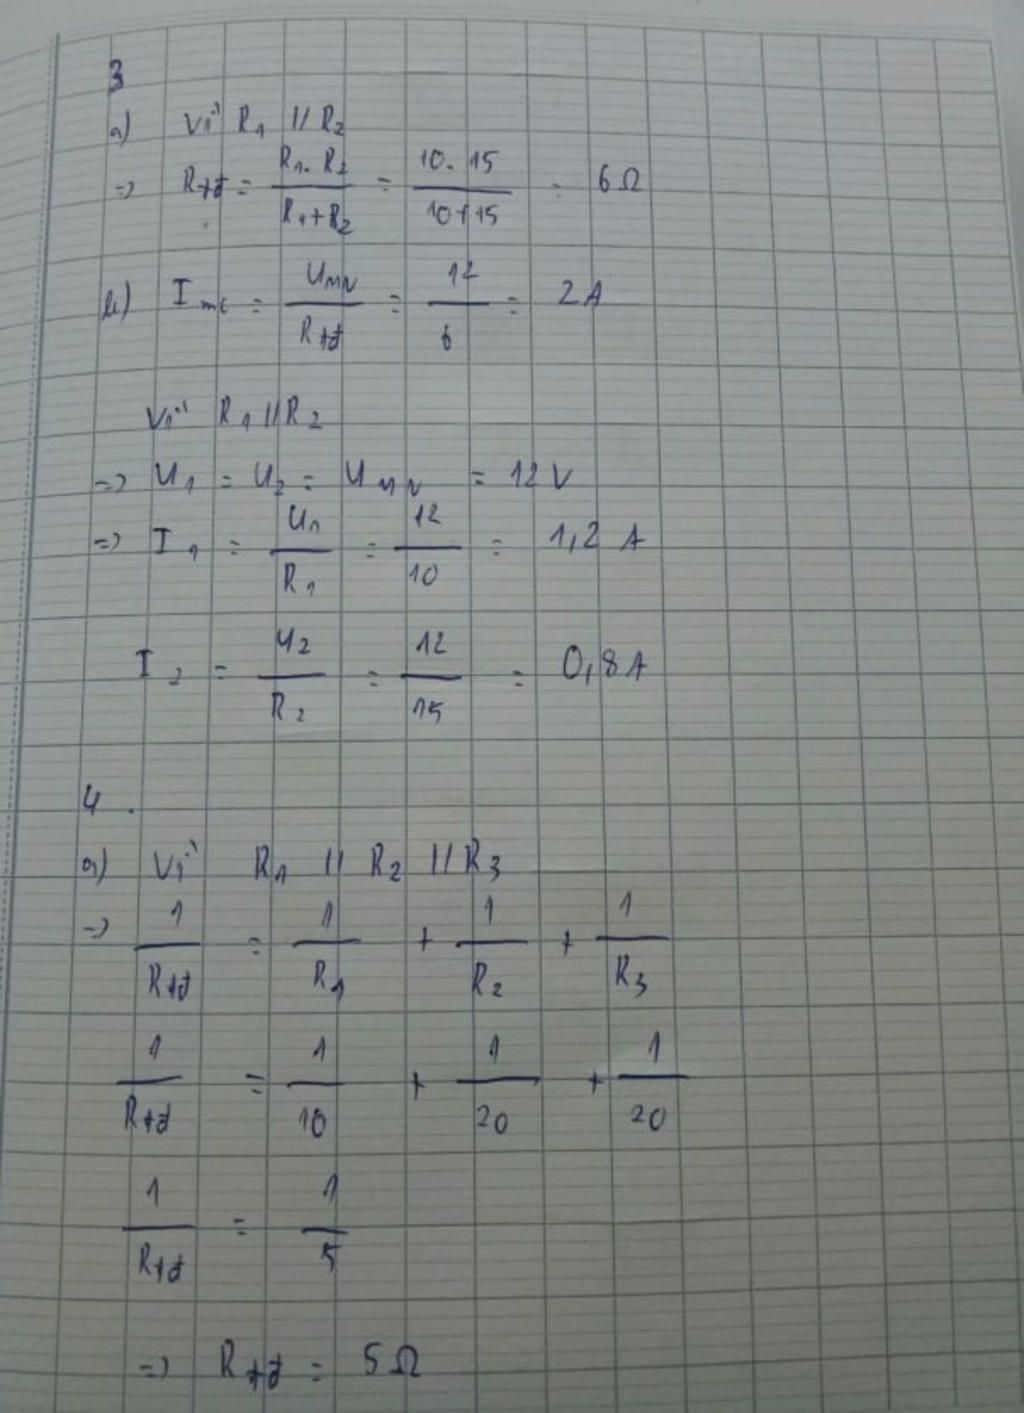 3
a) Vì R₁ // R₂
=> Rtđ = R₁. R₂ / R₁+R₂ = 10. 15 / 10+15 = 6Ω
b) I mc = UMN / Rtđ = 12 / 6 = 2A
Vì R₁ // R₂
=> U₁ = U₂ = UMN = 12V
=> I₁ = U₁ / R₁ = 12 / 10 = 1,2 A
I₂ = U₂ / R₂ = 12 / 15 = 0,8A
4.
a) Vì R₁ // R₂ // R₃
=> 1 / Rtđ = 1 / R₁ + 1 / R₂ + 1 / R₃
1 / Rtđ = 1 / 10 + 1 / 20 + 1 / 20
1 / Rtđ = 1 / 5
=> Rtđ = 5Ω